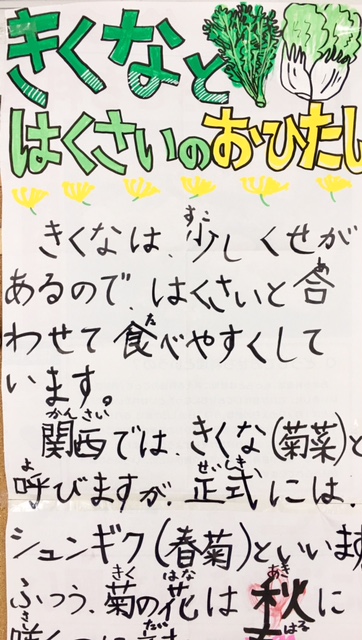 きくなと
はくさいのおひたし
きくなは、少しくせが
あるので、はくさいと合
わせて食べやすくして
います。
関西では、きくな(菊菜)と
呼びますが、正式には、
シュンギク(春菊)といいます
ふつう、菊の花は秋に